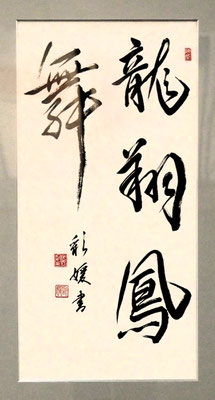 龍翔鳳
舞
彩媛書